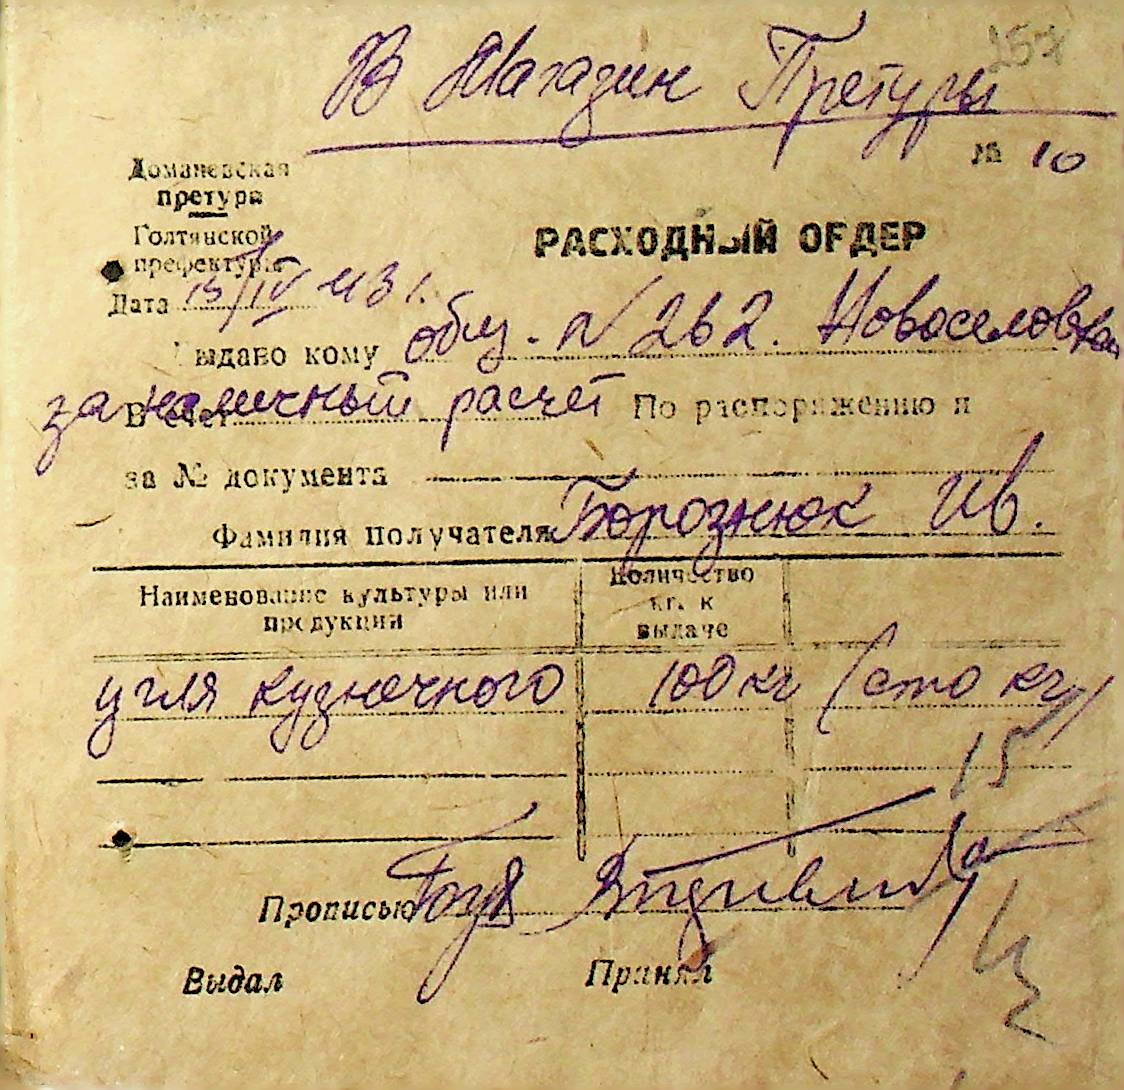 В Магазин Претуры
Домановская
претура
№ 10
Голтянской
префектуры
РАСХОДНЫЙ ОРДЕР
Дата 15/IV 43 г.
Выдано кому общ. N 262. Новоселовка
В счет за наличный расчет По распоряжению и
за № документа
Фамилия получателя Борознюк Ив.
Наименование культуры или
продукции
Количество
кг. к
выдаче
угля кузнечного 100 кг (сто кг)
15
Прописью
Выдал Принял